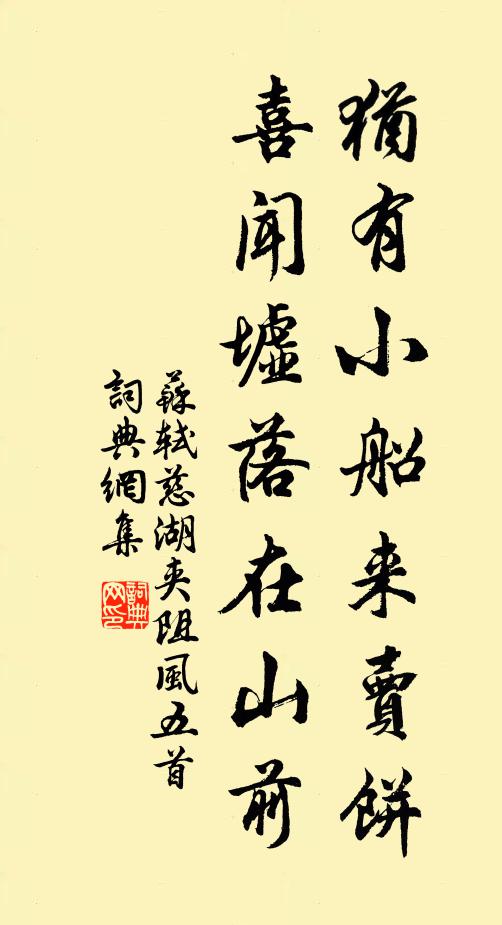 猶有小船来賣餅
喜聞墟落在山前
蘇軾慈湖夹阻風五首
詞典網集
詞典
网印